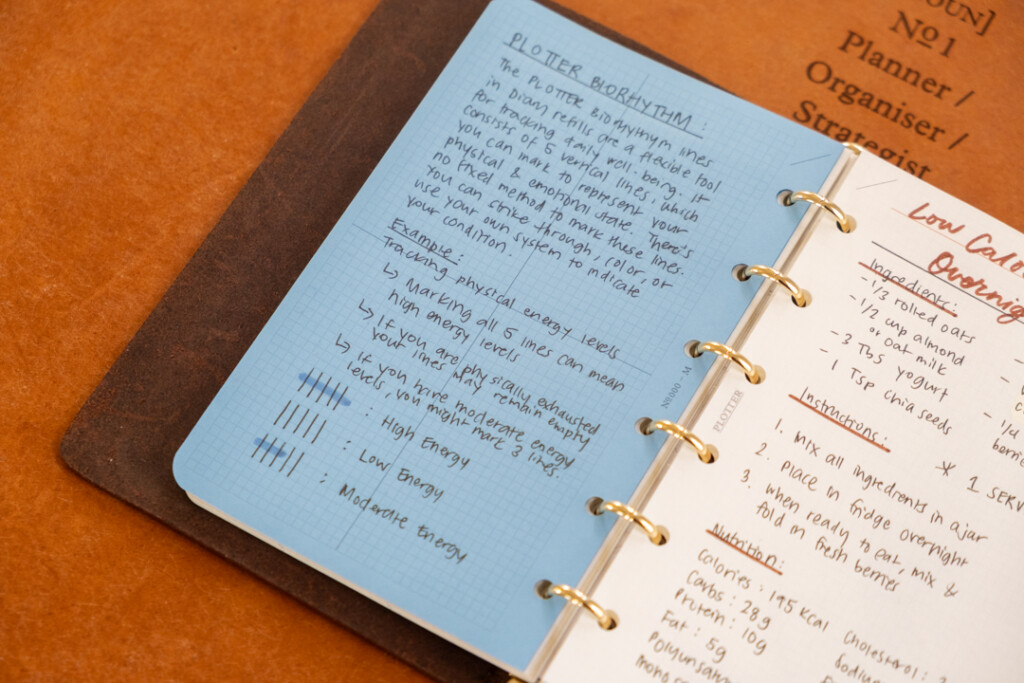 PLOTTER BIORHYTHM :
The PLOTTER Biorhythym lines
in Diary refills are a flexible tool
for tracking daily well-being. It
consists of 5 vertical lines, which
you can mark to represent your
physical & emotional state. There's
no fixed method to mark these lines.
You can strike through, color, or
use your own system to indicate
your condition.
Example :
Tracking physical energy levels
↳ Marking all 5 lines can mean
high energy levels
↳ If you are physically exhausted
your lines may remain empty
↳ If you have moderate energy
levels, you might mark 3 lines.
: High Energy
: Low Energy
: Moderate Energy
PLOTTER
Low Calo
Overnig
Ingredients:
- 1/3 rolled oats
- 1/2 cup almond
or oat milk
- 3 Tbs yogurt
- 1 Tsp chia seeds
1/d
berri
* 1 SERV
Instructions:
1. Mix all ingredients in a jar
2. Place in fridge overnight
3. when ready to eat, mix &
fold in fresh berries
Nutrition:
Calories : 195 Kcal
Carbs : 28g
Protein : 10g
Fat : 5g
Polyunsatu
Cholesterol :
Sodiu
OUN]
Nº1
Planner /
Organiser /
Strategist